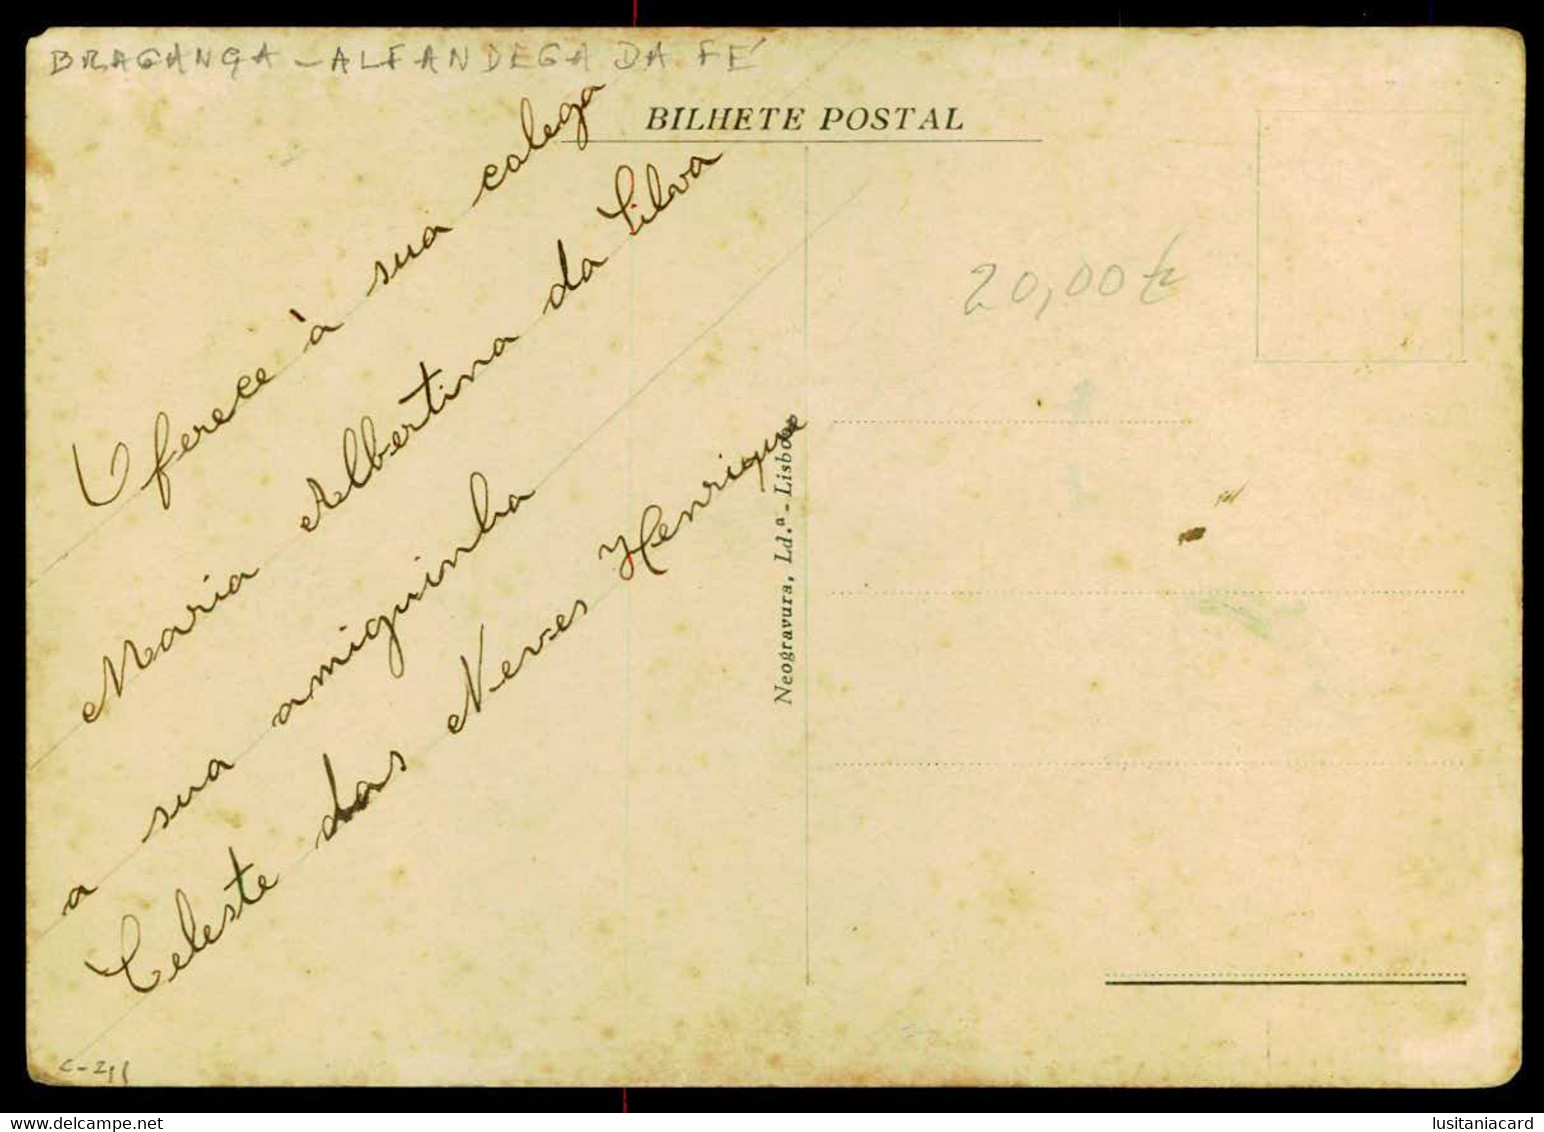 BRAGANÇA - ALFANDEGA DA FÉ
BILHETE POSTAL
Oferece à sua colega
Maria Albertina da Silva
a sua amiguinha
Celeste das Neves Henrique
20,00€
Neogravura, Ld.ª - Lisboa
C-211
delcampe.net
lusitaniacard